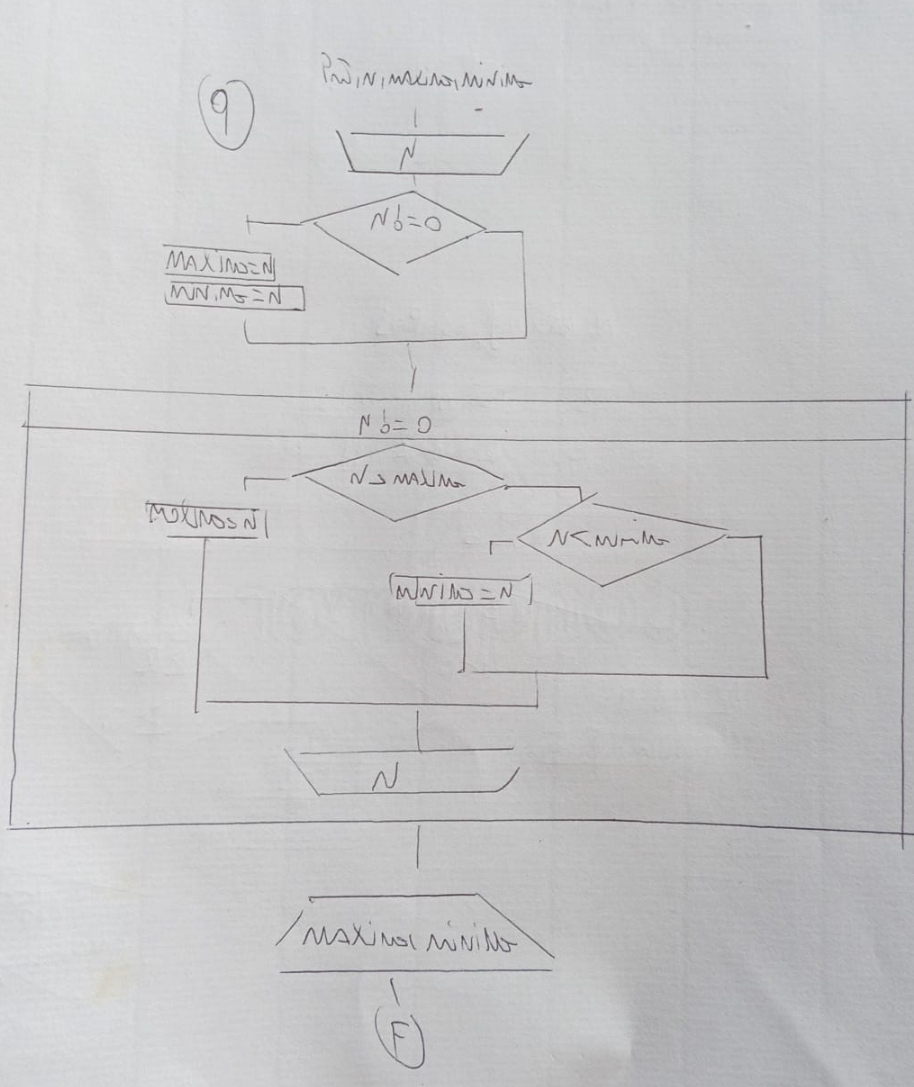 N, maximo, minimo
9
N
N!=0
MAXIMO=N
MINIMO=N
N!=0
N>MAXIMO
MAXIMO=N
N<MINIMO
MINIMO=N
N
MAXIMO, MINIMO
F